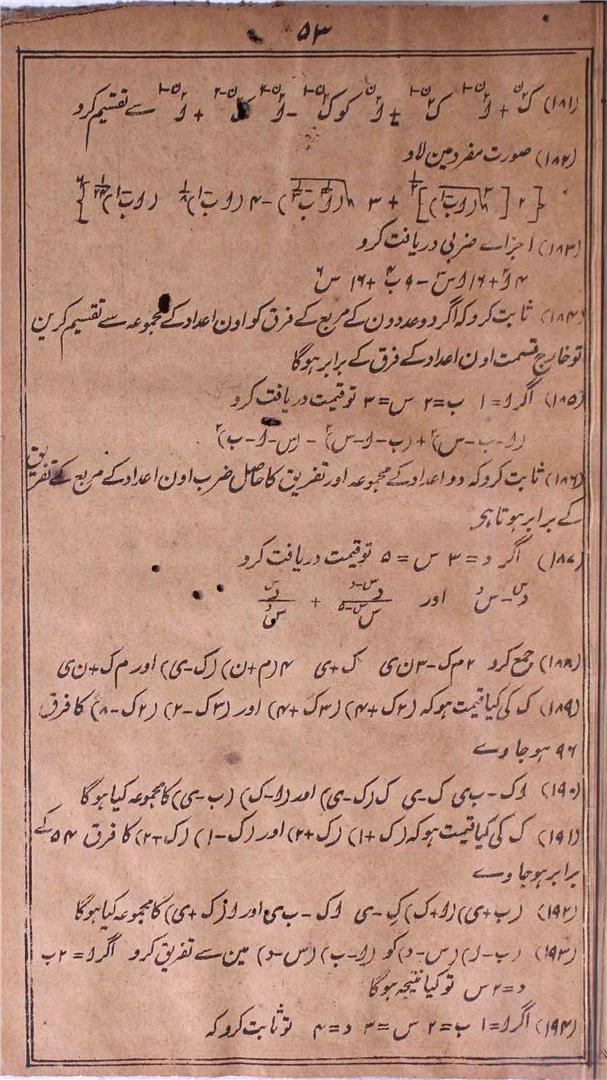 ۵۳
(۱۸۱) ک + ک + کو ک - + سے تقسیم کرو
(۱۸۲) صورت مفرد مین لاو
(۱۸۳) اجزاے ضربی دریافت کرو
(۱۸۴) ثابت کرو کہ اگر دو عددون کے مربع کے فرق کو اون اعداد کے مجموعہ سے تقسیم کرین
تو خارج قسمت اون اعداد کے فرق کے برابر ہوگا
(۱۸۵) اگر ا = ۱ ب = ۲ س = ۳ تو قیمت دریافت کرو
(ا-ب-س)² + (ب-ا-س)² - (س-ا-ب)²
(۱۸۶) ثابت کرو کہ دو اعداد کے مجموعہ اور تفریق کا حاصل ضرب اون اعداد کے مربع کے تفریق
کے برابر ہوتا ہی
(۱۸۷) اگر د = ۳ س = ۵ تو قیمت دریافت کرو
د^س - س^د اور
(۱۸۸) جمع کرو ۲م ک - ۳ن ی ک + ی ۴(م+ن) (ک-ی) اور م ک + ن ی
(۱۸۹) ک کی کیا قیمت ہو کہ (۲ک+۴) (۳ک+۴) اور (۳ک-۲) (۲ک-۸) کا فرق
۹۶ ہو جاوے
(۱۹۰) ا ک - ب ی ک - ی ک (ک-ی) اور (ا-ک) (ب-ی) کا مجموعہ کیا ہوگا
(۱۹۱) ک کی کیا قیمت ہو کہ (ک+۱) (ک+۲) اور (ک-۱) (ک-۲) کا فرق ۵۴ کے
برابر ہو جاوے
(۱۹۲) (ب+ی) (ا+ک) ک - ی ا ک - ب ی اور ا (ک+ی) کا مجموعہ کیا ہوگا
(۱۹۳) (ب-ا) (س-د) کو (ا-ب) (س-د) مین سے تفریق کرو اگر ا = ۲ب
د = ۲س تو کیا نتیجہ ہوگا
(۱۹۴) اگر ا = ۱ ب = ۲ س = ۳ د = ۴ تو ثابت کرو کہ